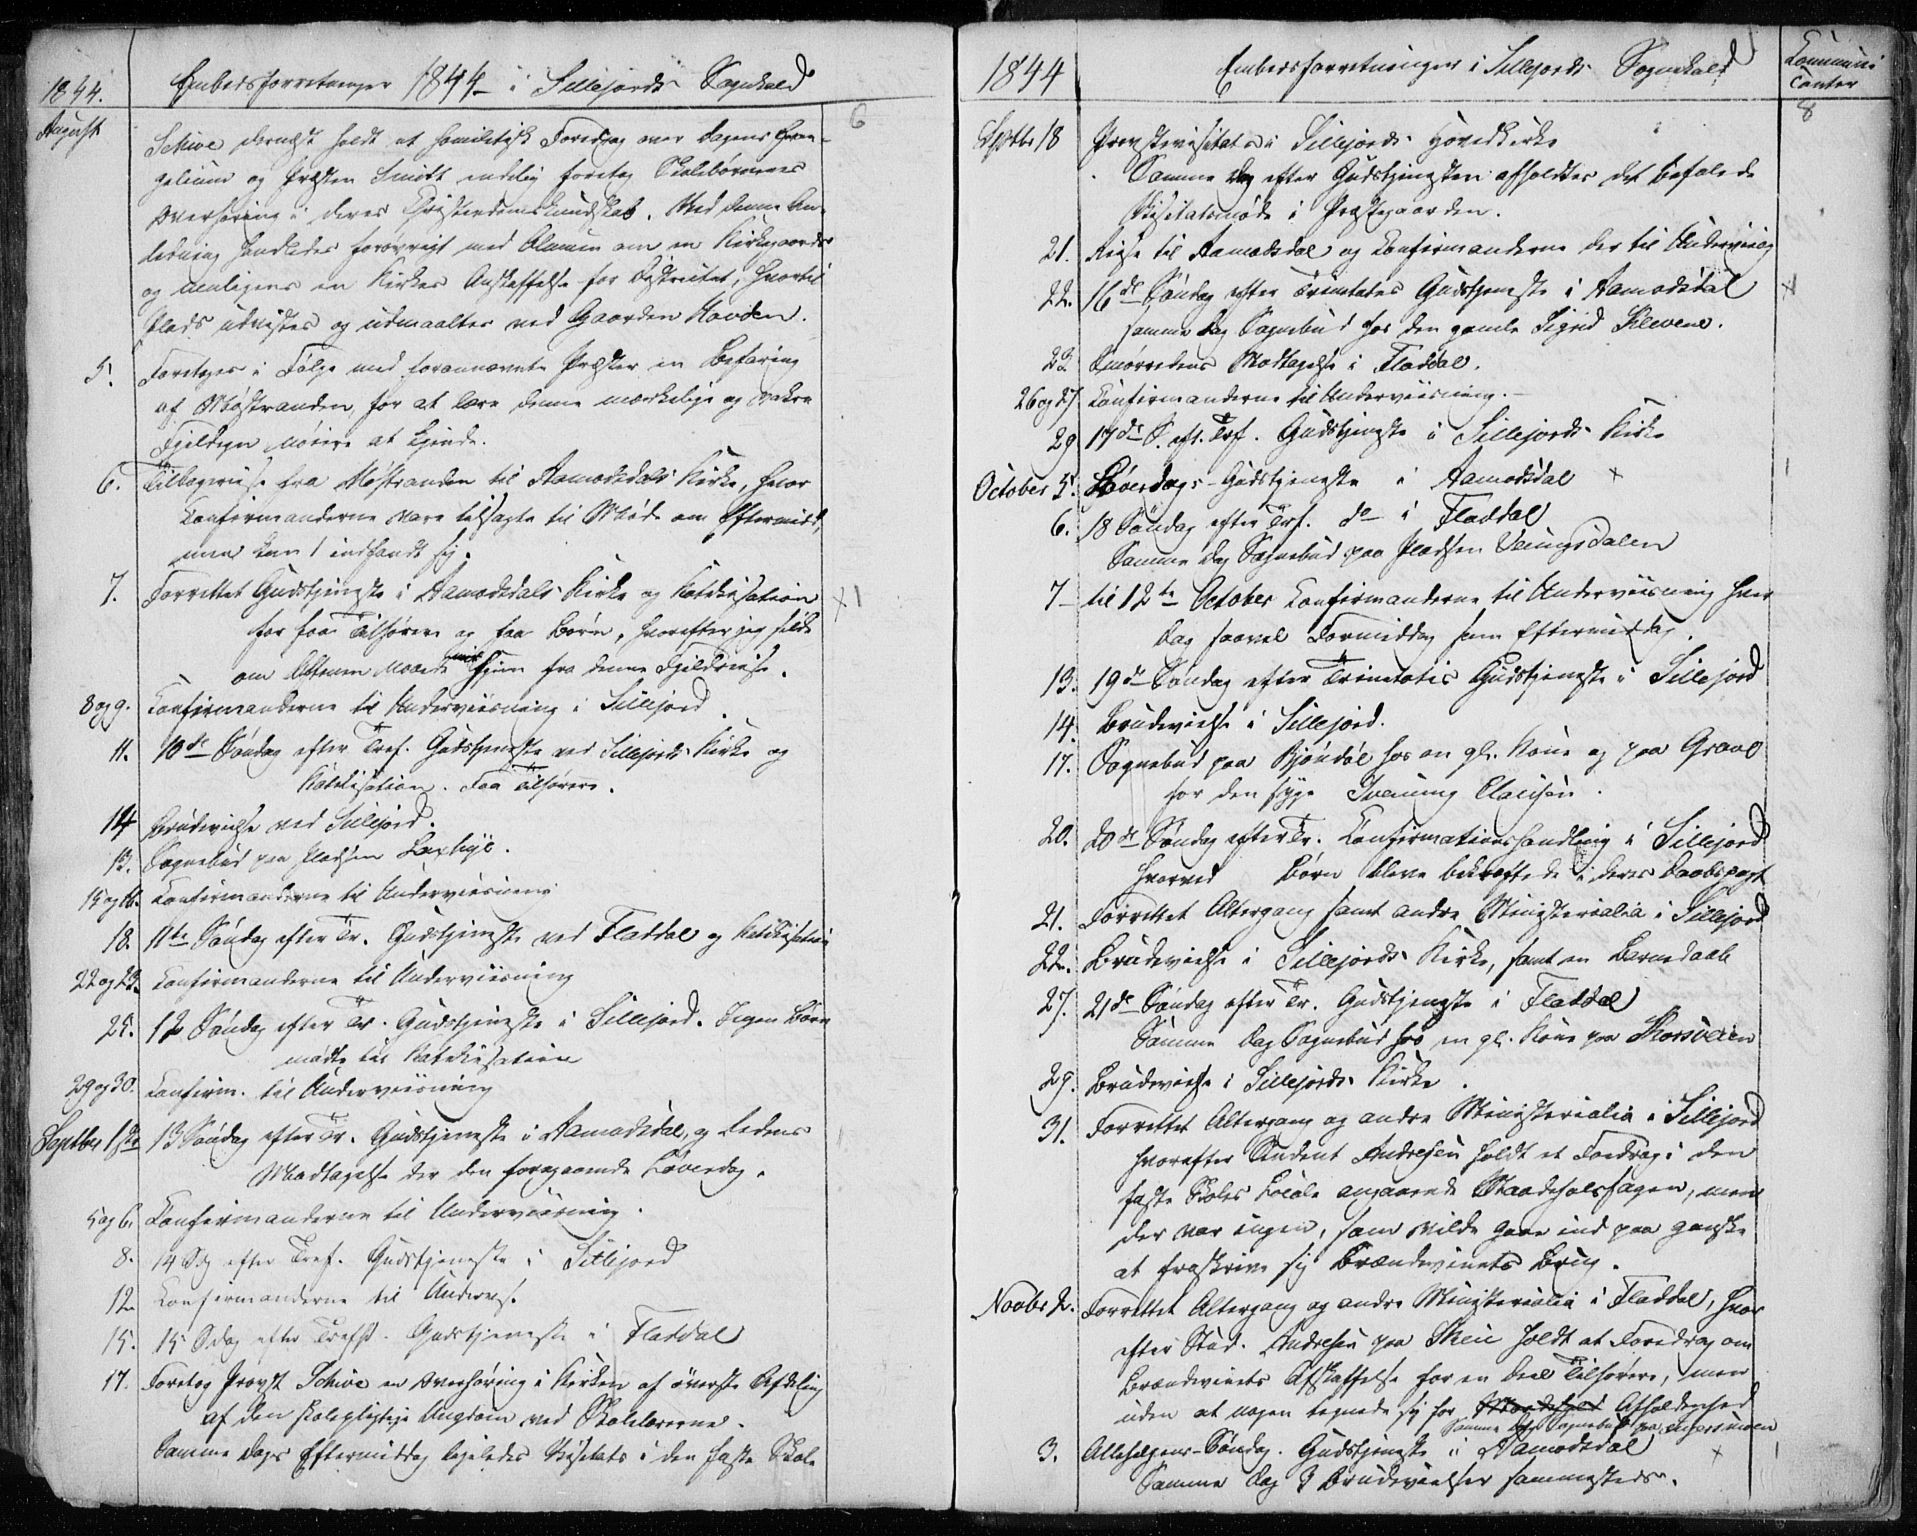 1844. Embedsforretninger 1844 i Sillejords Sognekald
6
August
Schive dernæst holdt et homiletisk Foredrag over Dagens Evan-
gelium og Præsten Smidt endelig foretog Skolebørnenes
Overhøring i deres Christendomskundskab. Ved denne An-
ledning handledes forøvrigt med Almuen om en Kirkegaards
og muligens en Kirkes Anskaffelse for Distriktet, hvortil
Plads udvistes og udmaaltes ved Gaarden Hovden.
5. Foretoges i Følge med forannævnte Præster en Befaring
af Møstranden, for at lære denne mærkelige og vakre
Fjeldegn nøiere at kjende.
6. Tilbagereise fra Møstranden til Aamodsdals Kirke, hvor
Confirmanderne vare tilsagte til Møde om Eftermidd,
men kun 1 indfandt sig.
7. Forrettet Gudstjeneste i Aamodsdals Kirke og Katekisation
for faa Tilhørere og faa Børn, hvorefter jeg silde
om Aftenen naaede mit Hjem fra denne Fjeldreise.
8 og 9. Confirmanderne til Underviisning i Sillejord
11. 10de Søndag efter Tref. Gudstjeneste ved Sillejords Kirke og
Katekisation. Faa Tilhørere.
14 Brudevielse ved Sillejord.
13. Sognebud paa Pladsen Laxhyl.
15 og 16. Confirmanderne til Underviisning
18. 11te Søndag efter Tr. Gudstjeneste ved Fladdal og Katekisation
22 og 23. Confirmanderne til Underviisning
25. 12 Søndag efter Tr. Gudstjeneste i Sillejord. Ingen Børn
mødte til Katekisation
29 og 30. Confirm. til Underviisning
Septber 1ste 13 Søndag efter Tr. Gudstjeneste i Aamodsdal, og Ledens
Modtagelse der den foregaaende Løverdag.
5 og 6. Confirmanderne til Underviisning.
8. 14 Sdg efter Tref. Gudstjeneste i Sillejord
12. Confirmanderne til Underv.
15. 15 Sdag efter Trefh. Gudstjeneste i Fladdal
17. Foretog Provst Schive en Overhøring i Kirken af øverste Afdeling
af den skolepligtige Ungdom ved Skolelærerne.
Samme Dags Eftermiddag ligeledes Visitats i den faste Skole
1844 Embedsforretninger i Sillejords Sognekald
Communi
canter
8
Septbr 18 Provstevisitats i Sillejords Hovedkirke
Samme Dag efter Gudstjenesten afholdtes det befalede
Visitatsmøde i Præstegaarden.
21. Reise til Aamodsdal og Confirmanderne der til Underviisng
22. 16de Søndag efter Trinitatis Gudstjeneste i Aamodsdal
samme Dag Sognebud hos den gamle Sigrid Klevene.
23 Smørredens Modtagelse i Fladdal.
26 og 27 Confirmanderne til Underviisning.
29 17de S. eft. Tref. Gudstjeneste i Sillejords Kirke
October 5. Løverdags-Gudstjeneste i Aamodsdal
6. 18 Søndag efter Tref. do i Fladdal
Samme Dag Sognebud paa Pladsen Veungsdalen
7 til 12te October Confirmanderne til Underviisning hver
Dag saavel Formiddag som Eftermiddag.
13. 19de Søndag efter Trinitatis Gudstjeneste i Sillejord
14. Brudevielse i Sillejord.
17. Sognebud paa Bjøndal hos en gl. Kone og paa Grave
for den syge Svenung Clausen.
20. 20de Søndag efter Tr. Confirmationshandling i Sillejord
hvorved Børn bleve bekræftede i deres Daabspagt
21. Forrettet Altergang samt andre Ministerialia i Sillejord
22. Brudevielse i Sillejords Kirke, samt en Barnedaab
27. 21de Søndag efter Tr. Gudstjeneste i Fladdal
Samme Dag Sognebud hos en gl. Kone paa
29. Brudevielse i Sillejords Kirke.
31. Forrettet Altergang og andre Ministerialia i Sillejord
hvorefter Student Andresen holdt et Foredrag i den
faste Skoles Locale angaaende Maadeholdssagen, men
der var ingen, som vilde gaae ind paa ganske
at fraskrive sig Brændevinets Brug.
Novbr 2. Forrettet Altergang og andre Ministerialia i Fladdal, hvor
efter Stud. Andresen paa Skeie holdt et Foredrag om
Brændevinets Afskaffelse for en Deel Tilhørere, men
uden at nogen tegnede sig for Maadehold Afholdenhed
Samme Dag Sognebud paa
3. Allehelgens-Søndag. Gudstjeneste i Aamodsdal
Samme Dag 3 Brudevielser sammesteds.